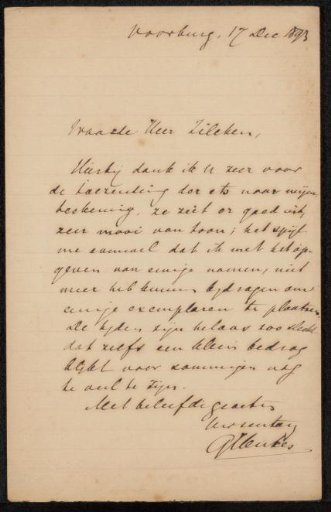 Voorburg, 17 Dec 1893
Waarde Heer Zilcken,
Hierbij dank ik U zeer voor
de toezending der ets naar mijne
teekening. ze ziet er goed uit,
zeer mooi van toon; het spijt
me dat ik met het op-
geven van eenige namen, niet
meer heb kunnen bijdragen om
eenige exemplaren te plaatsen
De tijden zijn helaas zoo slecht
dat zelfs een klein bedrag
blijkt voor sommigen nog
te veel te zijn.
Met beleefde groeten